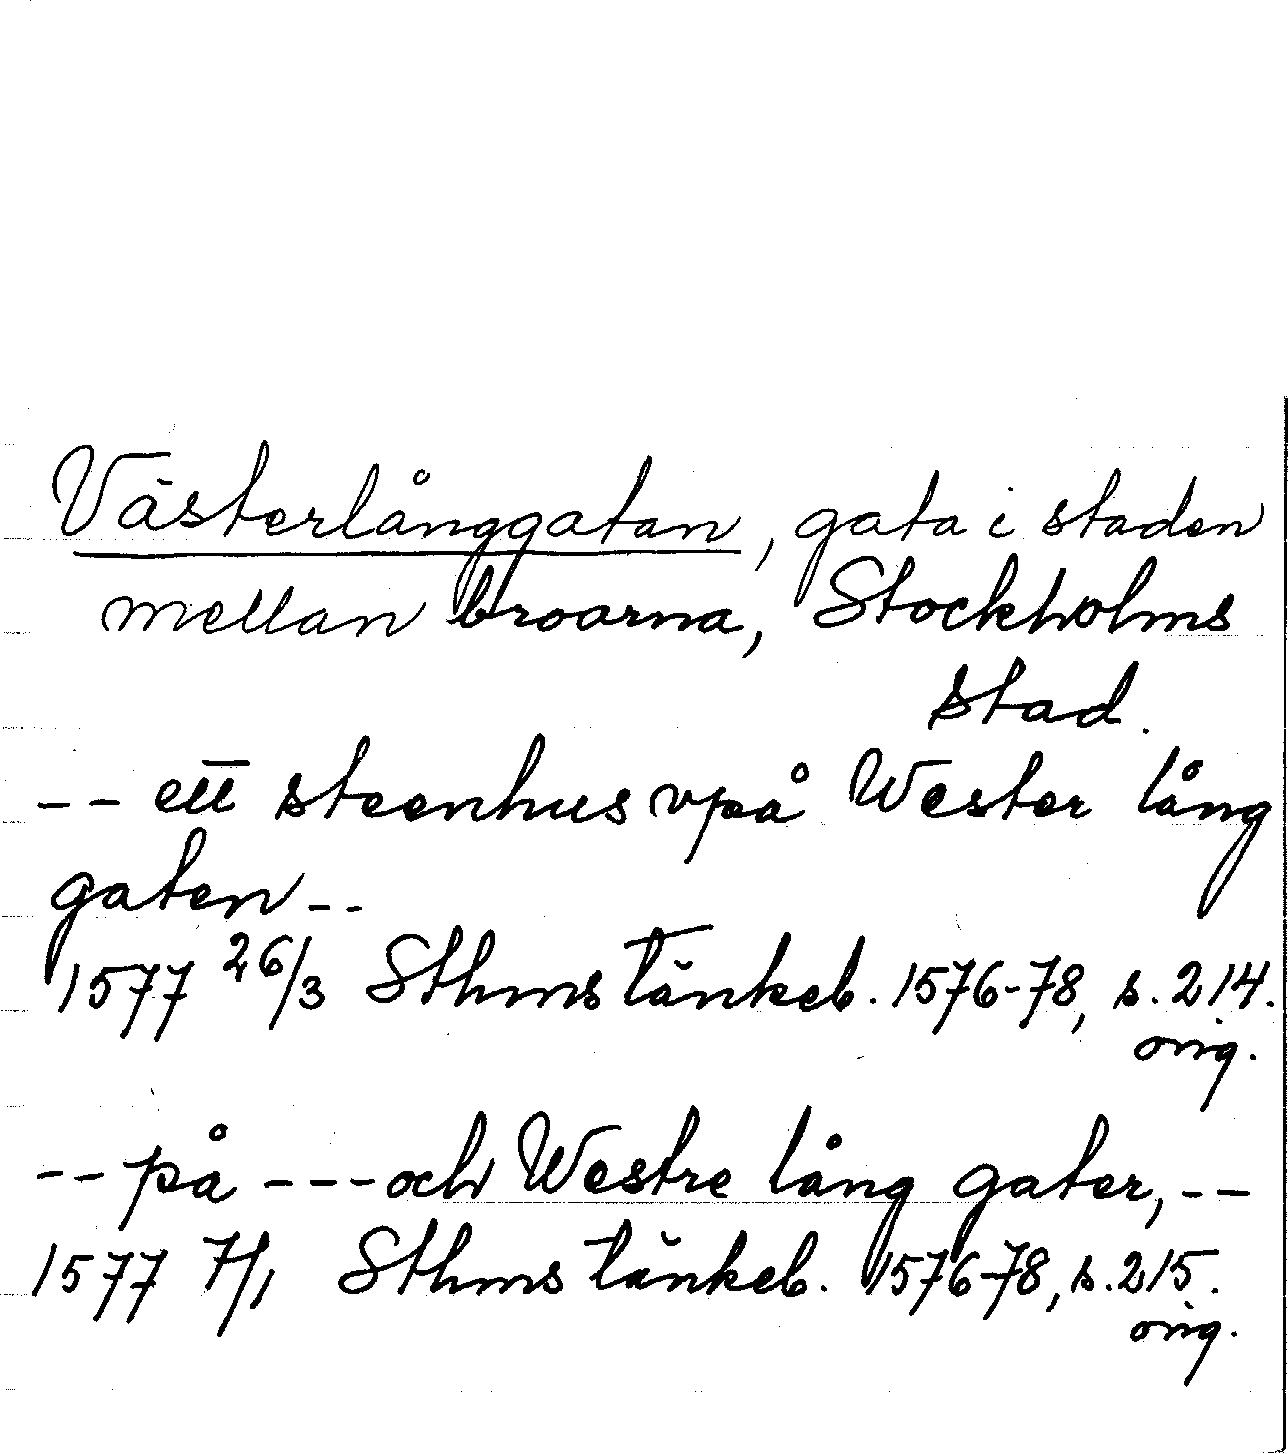 Västerlånggatan, gata i staden
mellan broarna, Stockholms
stad.
-- ett steenhus vpå Wester lång
gaten --
1577 26/3 Sthms tänkeb. 1576-78, s. 214.
orig.
-- på --- och Westre lång gater, --
1577 7/1 Sthms tänkeb. 1576-78, s. 215.
orig.